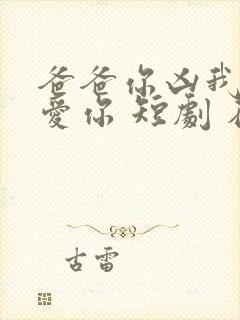 爸爸你凶我
愛你 短劇
古雷